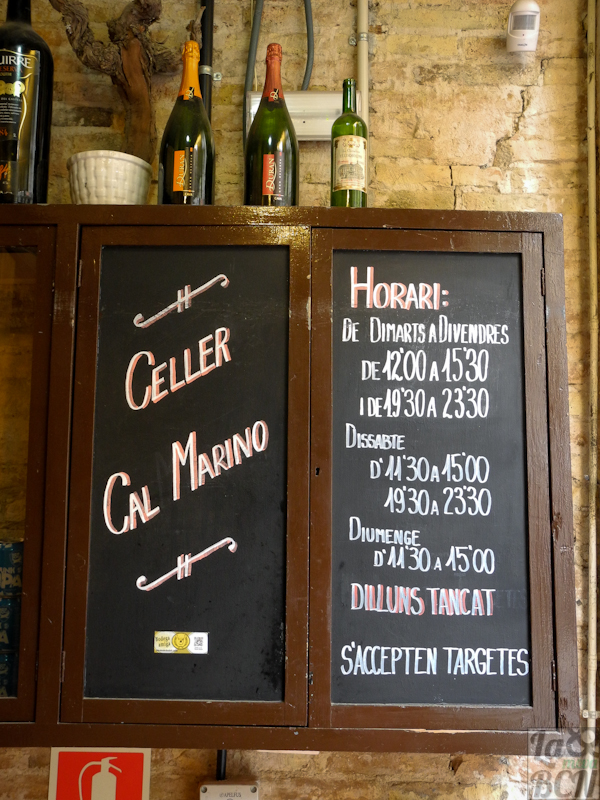 UIRRE
CELLER
CAL MARINO
HORARI:
DE DIMARTS A DIVENDRES
DE 12'00 A 15'30
I DE 19'30 A 23'30
DISSABTE
D'11'30 A 15'00
19'30 A 23'30
DIUMENGE
D'11'30 A 15'00
DILLUNS TANCAT
S'ACCEPTEN TARGETES
BCN